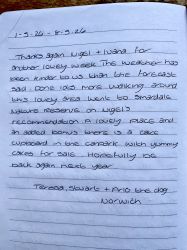 1-5-26 - 8-5-26
Thanks again Nigel + Ivana for
another lovely week. The weather has
been kinder to us than the forecast
said. Done lots more walking around
this lovely area. Went to Smardale
Nature Reserve on Nigel's
recommendation. A lovely place and
an added bonus there is a cake
cupboard in the carpark with yummy
cakes for sale. Hopefully be
back again next year.
Teresa, Stuart + Arlo the dog
Norwich